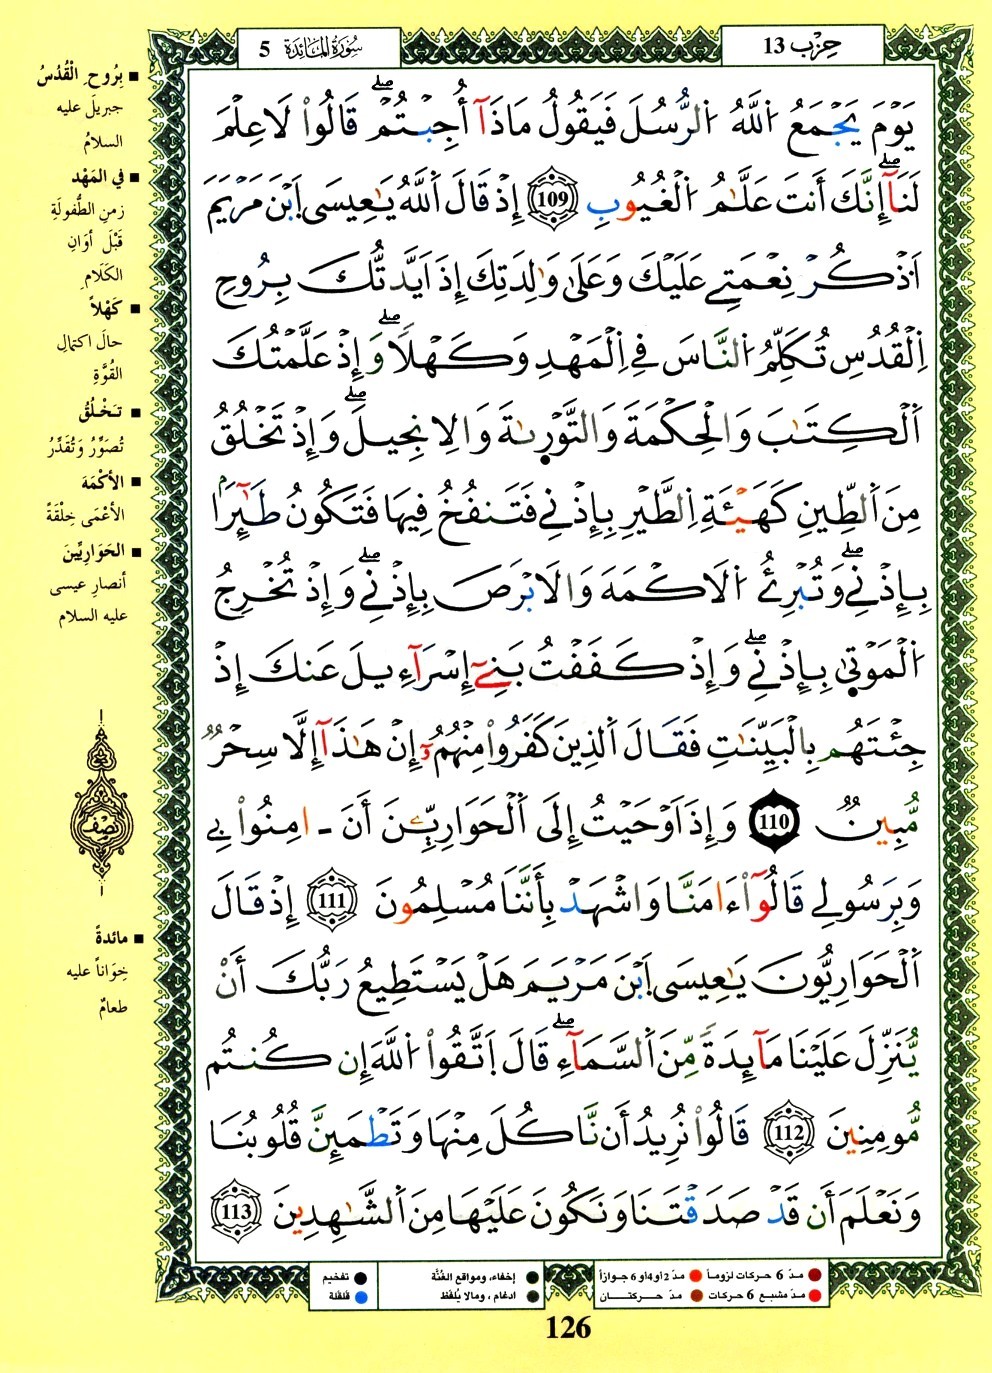 حِزْب 13
سُورَةُ المَائدَة 5
يَوْمَ يَجْمَعُ اُ۬للَّهُ اُ۬لرُّسُلَ فَيَقُولُ مَاذَآ أُجِبْتُمْۖ قَالُواْ لَا عِلْمَ
لَنَآۖ إِنَّكَ أَنتَ عَلَّٰمُ اُ۬لْغُيُوبِ 109 إِذْ قَالَ اَ۬للَّهُ يَٰعِيسَى اَ۪بْنَ مَرْيَمَ
اَ۟ذْكُرْ نِعْمَتِے عَلَيْكَ وَعَلَىٰ وَٰلِدَتِكَ إِذَ اَيَّدتُّكَ بِرُوحِ
اِ۬لْقُدُسِ تُكَلِّمُ اُ۬لنَّاسَ فِے اِ۬لْمَهْدِ وَكَهْلاٗۖ وَإِذْ عَلَّمْتُكَ
اَ۬لْكِتَٰبَ وَالْحِكْمَةَ وَالتَّوْر۪ىٰةَ وَالِانجِيلَۖ وَإِذْ تَخْلُقُ
مِنَ اَ۬لطِّينِ كَهَيْـَٔةِ اِ۬لطَّيْرِ بِإِذْنِے فَتَنفُخُ فِيهَا فَتَكُونُ طَٰٓئِراَۢ
بِإِذْنِےۖ وَتُبْرِئُ اُ۬لَاكْمَهَ وَالَابْرَصَ بِإِذْنِےۖ وَإِذْ تُخْرِجُ
اُ۬لْمَوْت۪ىٰ بِإِذْنِےۖ وَإِذْ كَفَفْتُ بَنِےٓ إِسْرَآءِيلَ عَنكَ إِذْ
جِئْتَهُم بِالْبَيِّنَٰتِ فَقَالَ اَ۬لذِينَ كَفَرُواْ مِنْهُمُۥٓ إِنْ هَٰذَآ إِلَّا سِحْرٞ
مُّبِينٞ 110 وَإِذَ اَوْحَيْتُ إِلَى اَ۬لْحَوَارِيِّـۧنَ أَنَ ـ امِنُواْ بِے
وَبِرَسُولِے قَالُوٓاْ ءَامَنَّا وَاشْهَدْ بِأَنَّنَا مُسْلِمُونَ 111 إِذْ قَالَ
اَ۬لْحَوَارِيُّونَ يَٰعِيسَى اَ۪بْنَ مَرْيَمَ هَلْ يَسْتَطِيعُ رَبُّكَ أَنْ
يُّنَزِّلَ عَلَيْنَا مَآئِدَةٗ مِّنَ اَ۬لسَّمَآءِۖ قَالَ اَ۪تَّقُواْ اُ۬للَّهَ إِن كُنتُم
مُّومِنِينَ 112 قَالُواْ نُرِيدُ أَن نَّاكُلَ مِنْهَا وَتَطْمَئِنَّ قُلُوبُنَا
وَنَعْلَمَ أَن قَدْ صَدَقْتَنَا وَنَكُونَ عَلَيْهَا مِنَ اَ۬لشَّٰهِدِينَ 113
■ بِرُوح الْقُدُسُ
جبريلَ عليه
السلامُ
■ في المَهْد
زمنِ الطُّفولَةِ
قَبْلَ أوَانِ
الكَلَامِ
■ كَهْلاً
حالَ اكتِمالِ
القُوَّةِ
■ تَخْلُقُ
تُصَوِّرُ وَتُقَدِّرُ
■ الأكْمَهَ
الأعْمَى خِلْقَةً
■ الحَوَارِيِّينَ
أنصارِ عيسى
عليه السلام
نِصْف
■ مائدةً
خِوَاناً عليه
طعامٌ
مدّ 6 حركات لزوماً ● مدّ 2 أو 4 أو 6 جوازاً
مدّ مشبع 6 حركات ● مدّ حركتان
إخفاء، ومواقع الغُنَّة
ادغام، ومالا يُلفَظ
تفخيم
قلقلة
126